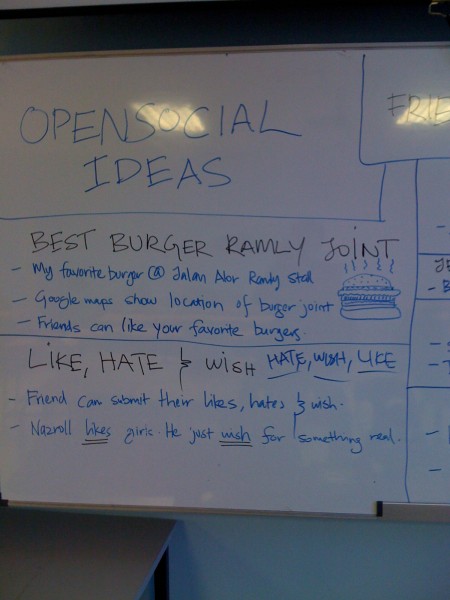 OPENSOCIAL
IDEAS
BEST BURGER RAMLY JOINT
- My favorite burger @ Jalan Alor Ramly Stall
- Google maps show location of burger joint
- Friends can like your favorite burgers.
LIKE, HATE & WISH HATE, WISH, LIKE
- Friend can submit their likes, hates & wish.
- Nazroll likes girls. He just wish for something real.
FRIE